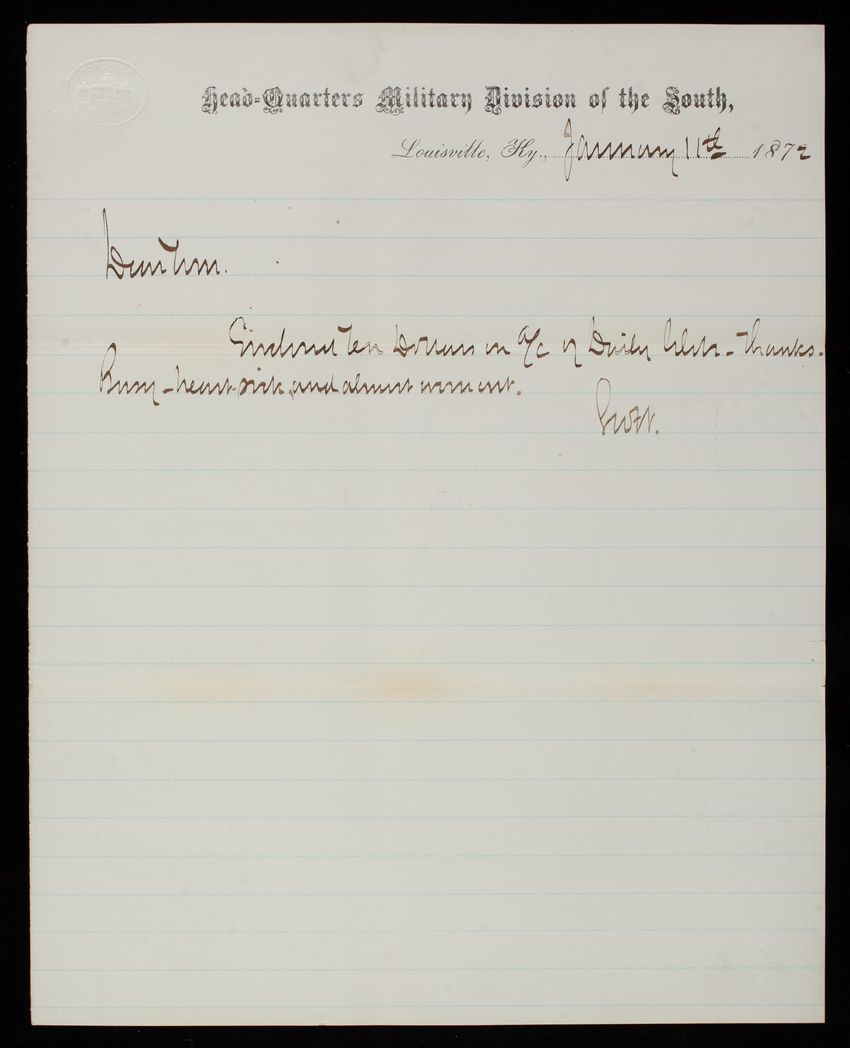 Head-Quarters Military Division of the South,
Louisville, Ky., January 11th 1872
Dear Tom.
Enclosed ten Dollars on a/c of Daily - Thanks.
Busy - heart-sick, and almost